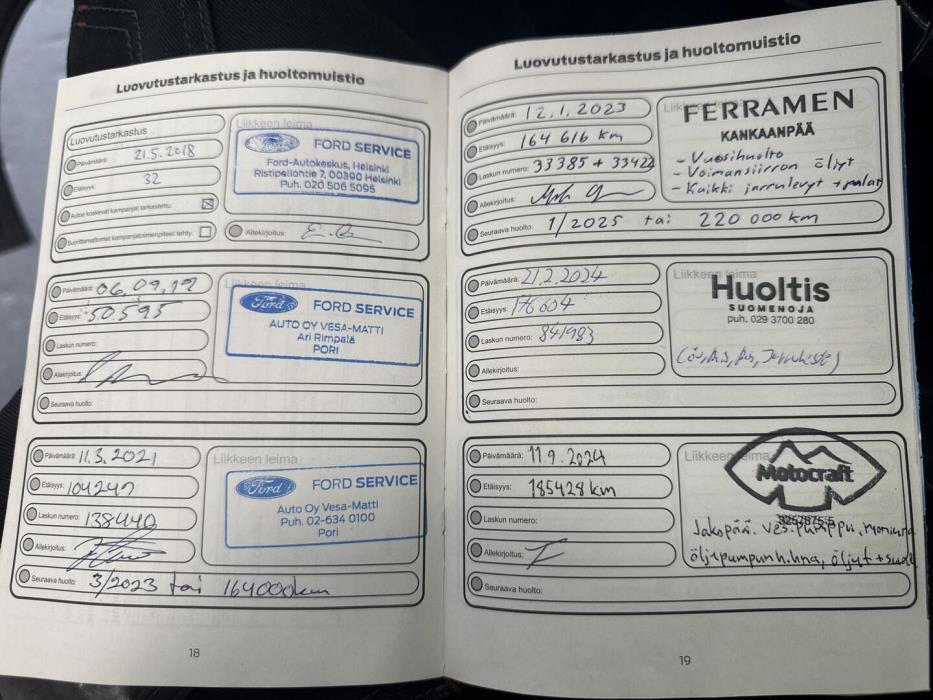 Luovutustarkastus ja huoltomuistio
Luovutustarkastus
Päivämäärä: 21.5.2018
Etäisyys: 32
Autoa koskevat kampanjat tarkastettu:
Suorittamattomat kampanjatoimenpiteet tehty:
Liikkeen leima
Ford
FORD SERVICE
Ford-Autokeskus, Helsinki
Ristipellontie 7, 00390 Helsinki
Puh. 020 506 5095
Allekirjoitus:
Päivämäärä: 06.09.19
Etäisyys: 50595
Laskun numero:
Allekirjoitus:
Seuraava huolto:
Liikkeen leima
Ford
FORD SERVICE
AUTO OY VESA-MATTI
Ari Rimpelä
PORI
Päivämäärä: 11.3.2021
Etäisyys: 104247
Laskun numero: 138440
Allekirjoitus:
Seuraava huolto: 3/2023 tai 164000km
Liikkeen leima
Ford
FORD SERVICE
Auto Oy Vesa-Matti
Puh. 02-634 0100
Pori
18
Luovutustarkastus ja huoltomuistio
Päivämäärä: 12.1.2023
Etäisyys: 164 616 km
Laskun numero: 33385 + 33422
Allekirjoitus:
Seuraava huolto: 1/2025 tai 220 000 km
Liikkeen leima
FERRAMEN
KANKAANPÄÄ
- Vuosihuolto
- Voimansiirron öljyt
- Kaikki jarrulevyt + palat
Päivämäärä: 21.2.2024
Etäisyys: 176604
Laskun numero: 841983
Allekirjoitus:
Seuraava huolto:
Liikkeen leima
Huoltis
SUOMENOJA
puh. 029 3700 280
Päivämäärä: 11.9.2024
Etäisyys: 185428 km
Laskun numero:
Allekirjoitus:
Seuraava huolto:
Liikkeen leima
Motocraft
3257875-5
Jakopää. ves.pumppu, moniura
öljypumpun hihna, öljyt + suod
19